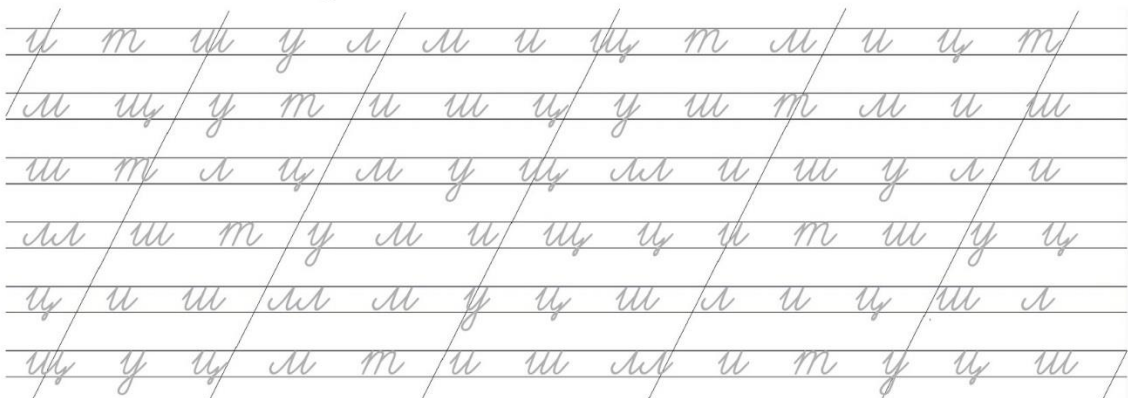 и т ш у л м и щ т м и ц т
м щ у т и ш ц у ш т м и ш
ш т л ц м у щ лл и ш у л и
лл ш т у м и щ ц и т ш у ц
ц и ш лл м у ц ш л и ц ш л
щ у ц м т и ш лл и т у ц ш